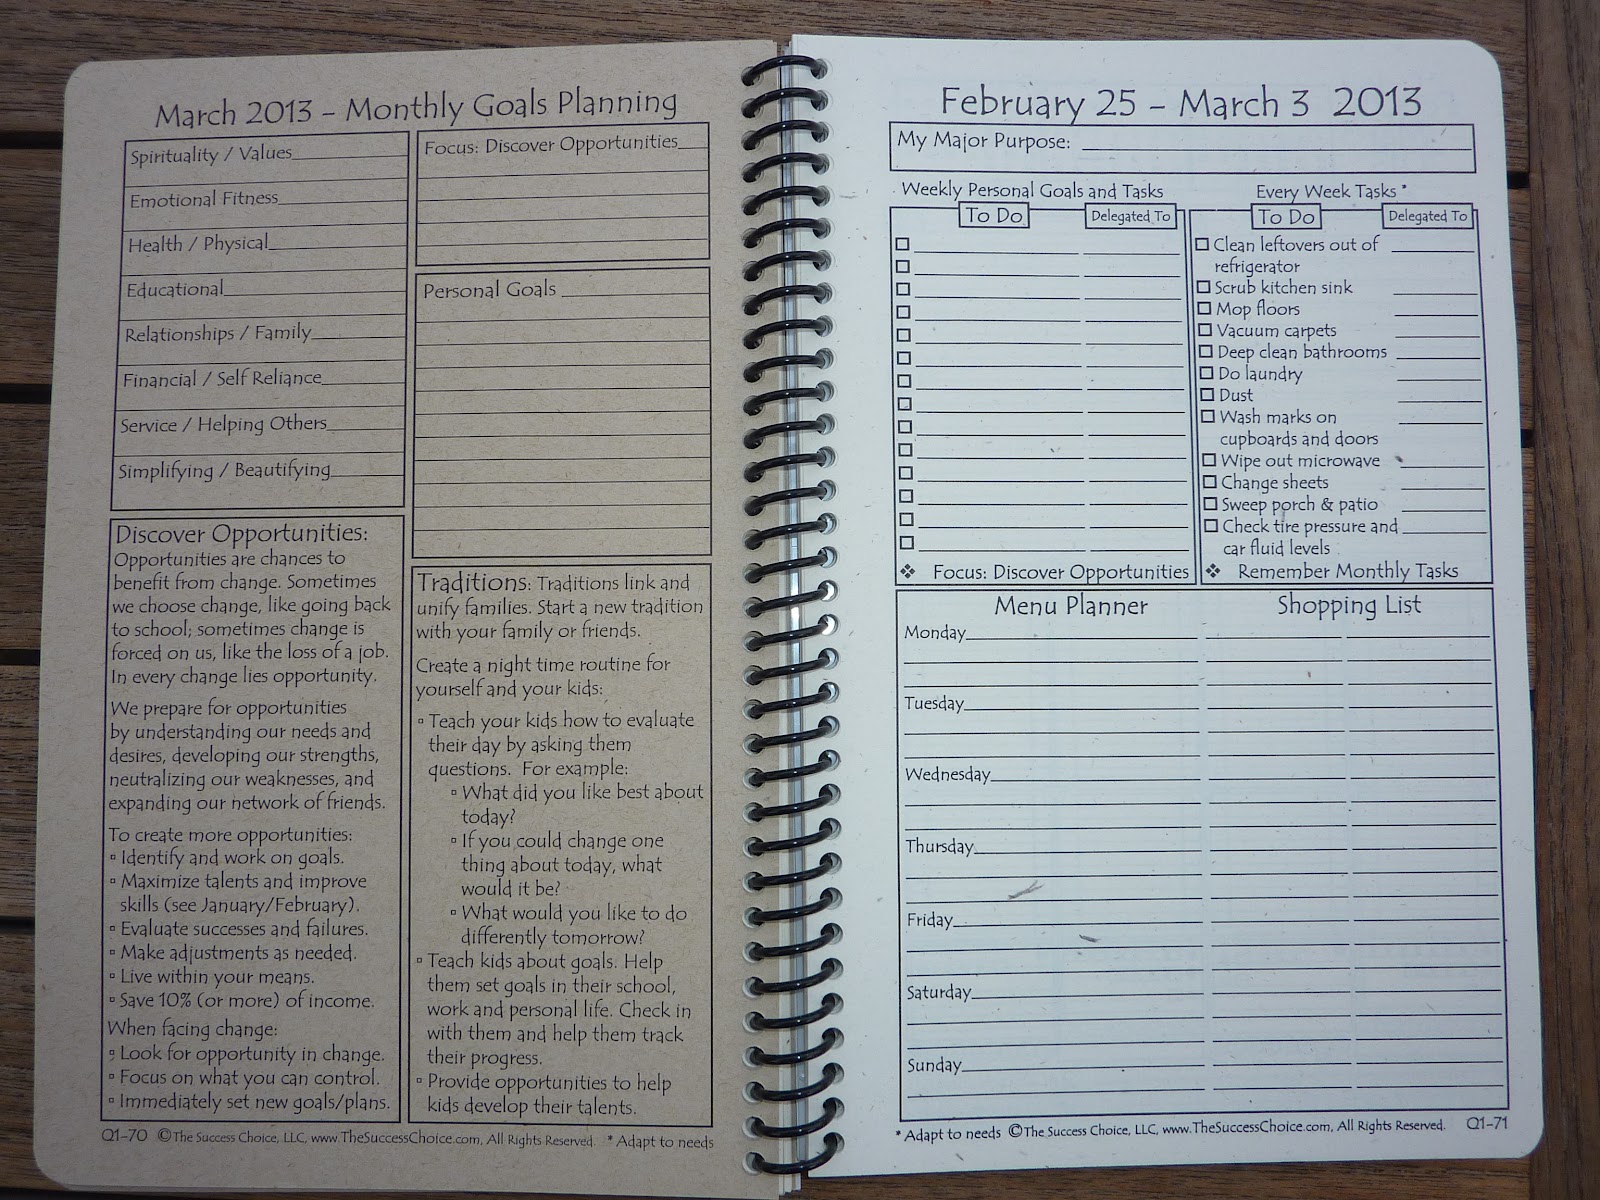 March 2013 – Monthly Goals Planning
Spirituality / Values
Emotional Fitness
Health / Physical
Educational
Relationships / Family
Financial / Self Reliance
Service / Helping Others
Simplifying / Beautifying
Discover Opportunities:
Opportunities are chances to
benefit from change. Sometimes
we choose change, like going back
to school; sometimes change is
forced on us, like the loss of a job.
In every change lies opportunity.
We prepare for opportunities
by understanding our needs and
desires, developing our strengths,
neutralizing our weaknesses, and
expanding our network of friends.
To create more opportunities:
▫ Identify and work on goals.
▫ Maximize talents and improve
skills (see January/February).
▫ Evaluate successes and failures.
▫ Make adjustments as needed.
▫ Live within your means.
▫ Save 10% (or more) of income.
When facing change:
▫ Look for opportunity in change.
▫ Focus on what you can control.
▫ Immediately set new goals/plans.
Focus: Discover Opportunities
Personal Goals
Traditions: Traditions link and
unify families. Start a new tradition
with your family or friends.
Create a night time routine for
yourself and your kids:
▫ Teach your kids how to evaluate
their day by asking them
questions. For example:
▫ What did you like best about
today?
▫ If you could change one
thing about today, what
would it be?
▫ What would you like to do
differently tomorrow?
▫ Teach kids about goals. Help
them set goals in their school,
work and personal life. Check in
with them and help them track
their progress.
▫ Provide opportunities to help
kids develop their talents.
Q1-70 ©The Success Choice, LLC, www.TheSuccessChoice.com, All Rights Reserved. * Adapt to needs
February 25 – March 3 2013
My Major Purpose:
Weekly Personal Goals and Tasks
To Do Delegated To
❖ Focus: Discover Opportunities
Every Week Tasks *
To Do Delegated To
Clean leftovers out of
refrigerator
Scrub kitchen sink
Mop floors
Vacuum carpets
Deep clean bathrooms
Do laundry
Dust
Wash marks on
cupboards and doors
Wipe out microwave
Change sheets
Sweep porch & patio
Check tire pressure and
car fluid levels
❖ Remember Monthly Tasks
Menu Planner Shopping List
Monday
Tuesday
Wednesday
Thursday
Friday
Saturday
Sunday
* Adapt to needs ©The Success Choice, LLC, www.TheSuccessChoice.com, All Rights Reserved. Q1-71